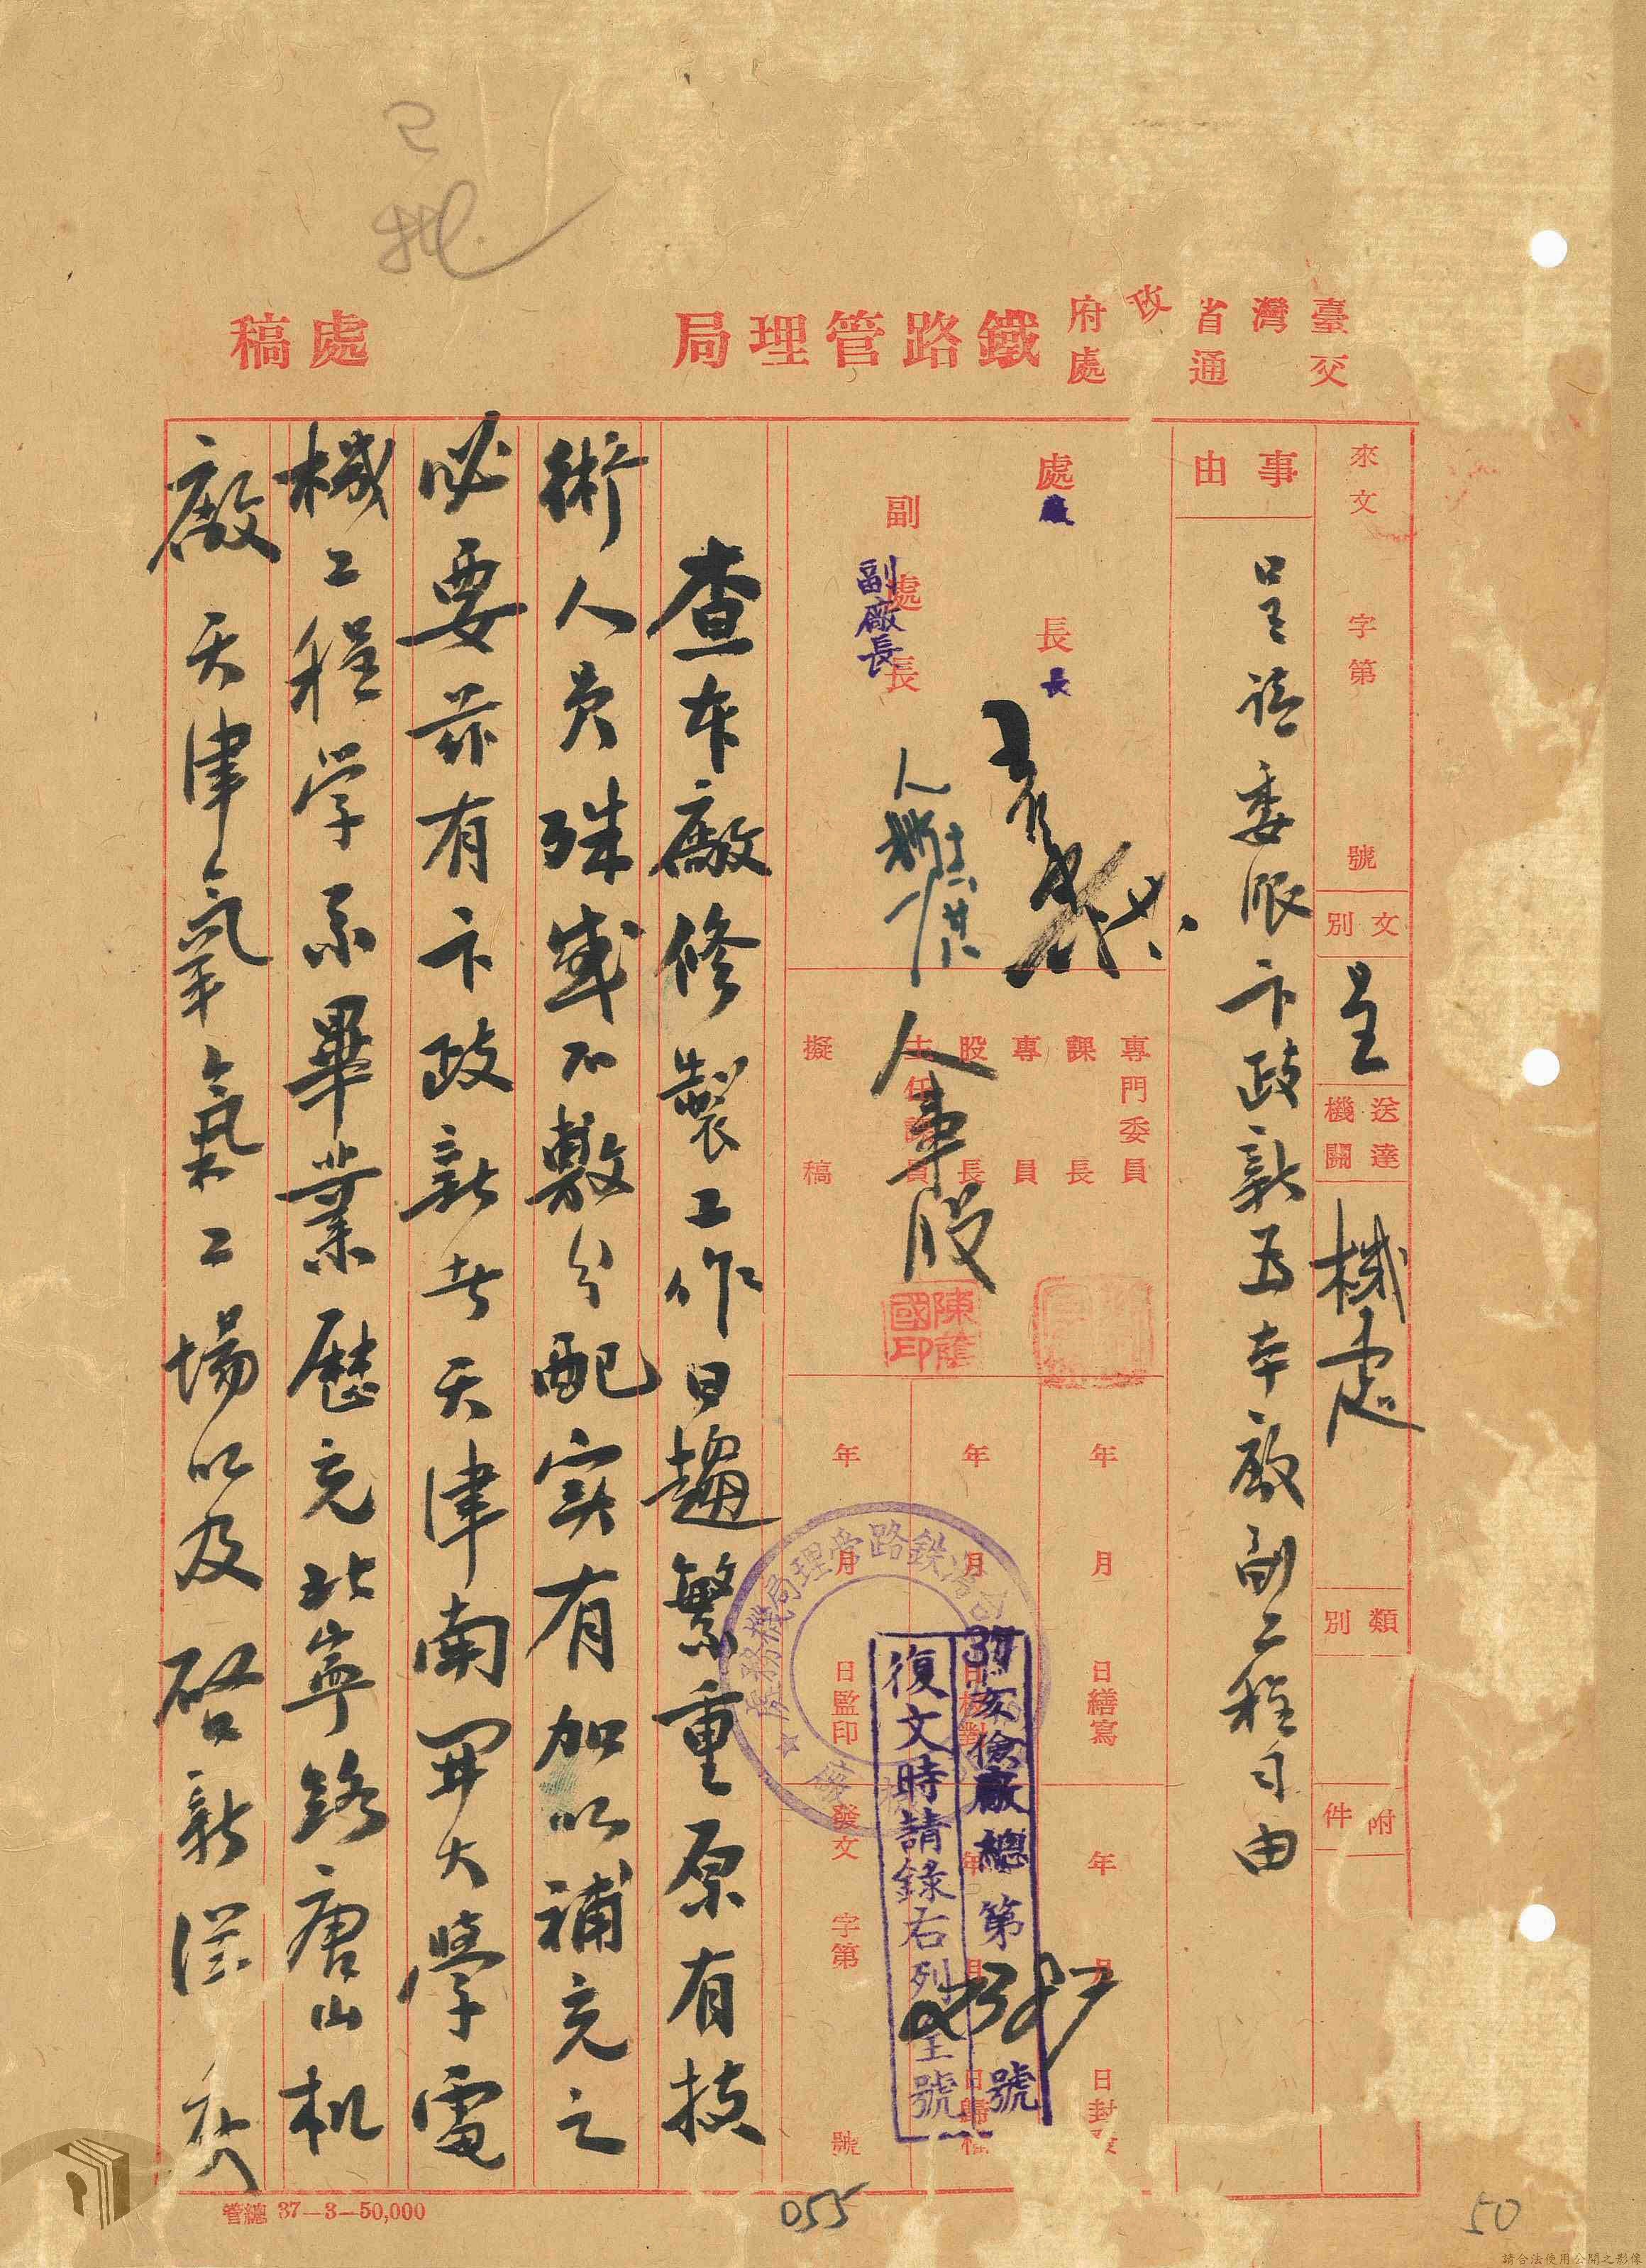 已批
臺灣省政府交通處
鐵路管理局
處稿
來文 字第 號
文別
呈
送達機關
機處
類別
附件
事由
呈請委派卞政新為本廠副工程司由
處長
廠長
副處長
副廠長
專門委員
課長
專員
股長
主任課員
擬稿
人事股
陳 國印
年 月 日繕寫
年 月 日校對
年 月 日監印
年 月 日封發
年 月 日歸檔
發文 字第 號
台灣鉄路管理局機務處
37亥儉廠總第 號
復文時請錄右列全號
查本廠修製工作日趨繁重原有技
術人員殊感不敷分配实有加以補充之
必要茲有卞政新者天津南開大學電
機工程学系畢業歷充北寧路唐山机
廠天津氧氣工場以及啓新洋灰
管總 37—3—50,000
055
50
請合法使用公開之影像